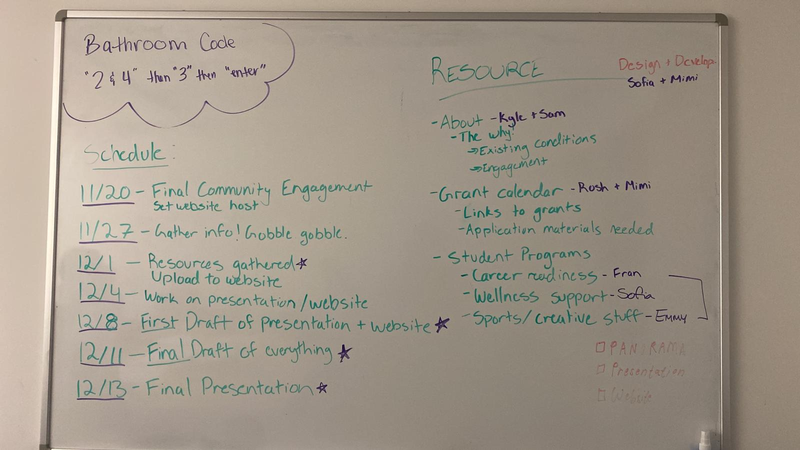 Bathroom Code
"2 & 4" then "3" then "enter"
Schedule:
11/20 - Final Community Engagement
Set website host
11/27 - Gather info! Gobble gobble.
12/1 - Resources gathered ★
Upload to website
12/4 - Work on presentation/website
12/8 - First Draft of presentation + website ★
12/11 - Final Draft of everything ★
12/13 - Final Presentation ★
RESOURCE
Design + Develop
Sofia + Mimi
- About - Kyle + Sam
- The why?
⇒ Existing conditions
⇒ Engagement
- Grant calendar - Rosh + Mimi
- Links to grants
- Application materials needed
- Student Programs
- Career readiness - Fran
- Wellness support - Sofia
- Sports/creative stuff - Emmy
☐ PANORAMA
☐ Presentation
☐ Website